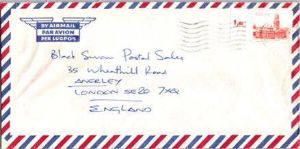 BY AIRMAIL
PAR AVION
PER LUGPOS
Black Swan Postal Sales
35 Wheathill Road
ANERLEY
LONDON SE20 7XQ
ENGLAND